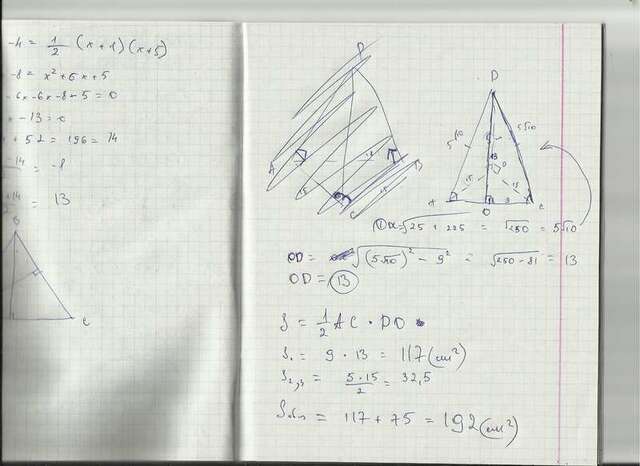 -4 = 1/2 (x+1)(x+5)
-8 = x²+6x+5
-6x-6x-8-5=0
x-13=0
+52=196=14
-14 = -1
+14/2 = 13
B
C
D
A
B
C
D
5√10
5√10
15
15
A
O
C
DA=√25+225 = √250 = 5√10
OD = √(5√10)² - 9² = √250-81 = 13
OD = 13
S = 1/2 AC · DO
S₁ = 9 · 13 = 117 (см²)
S₂,₃ = 5·15/2 = 32,5
= 117 + 75 = 192 (см²)